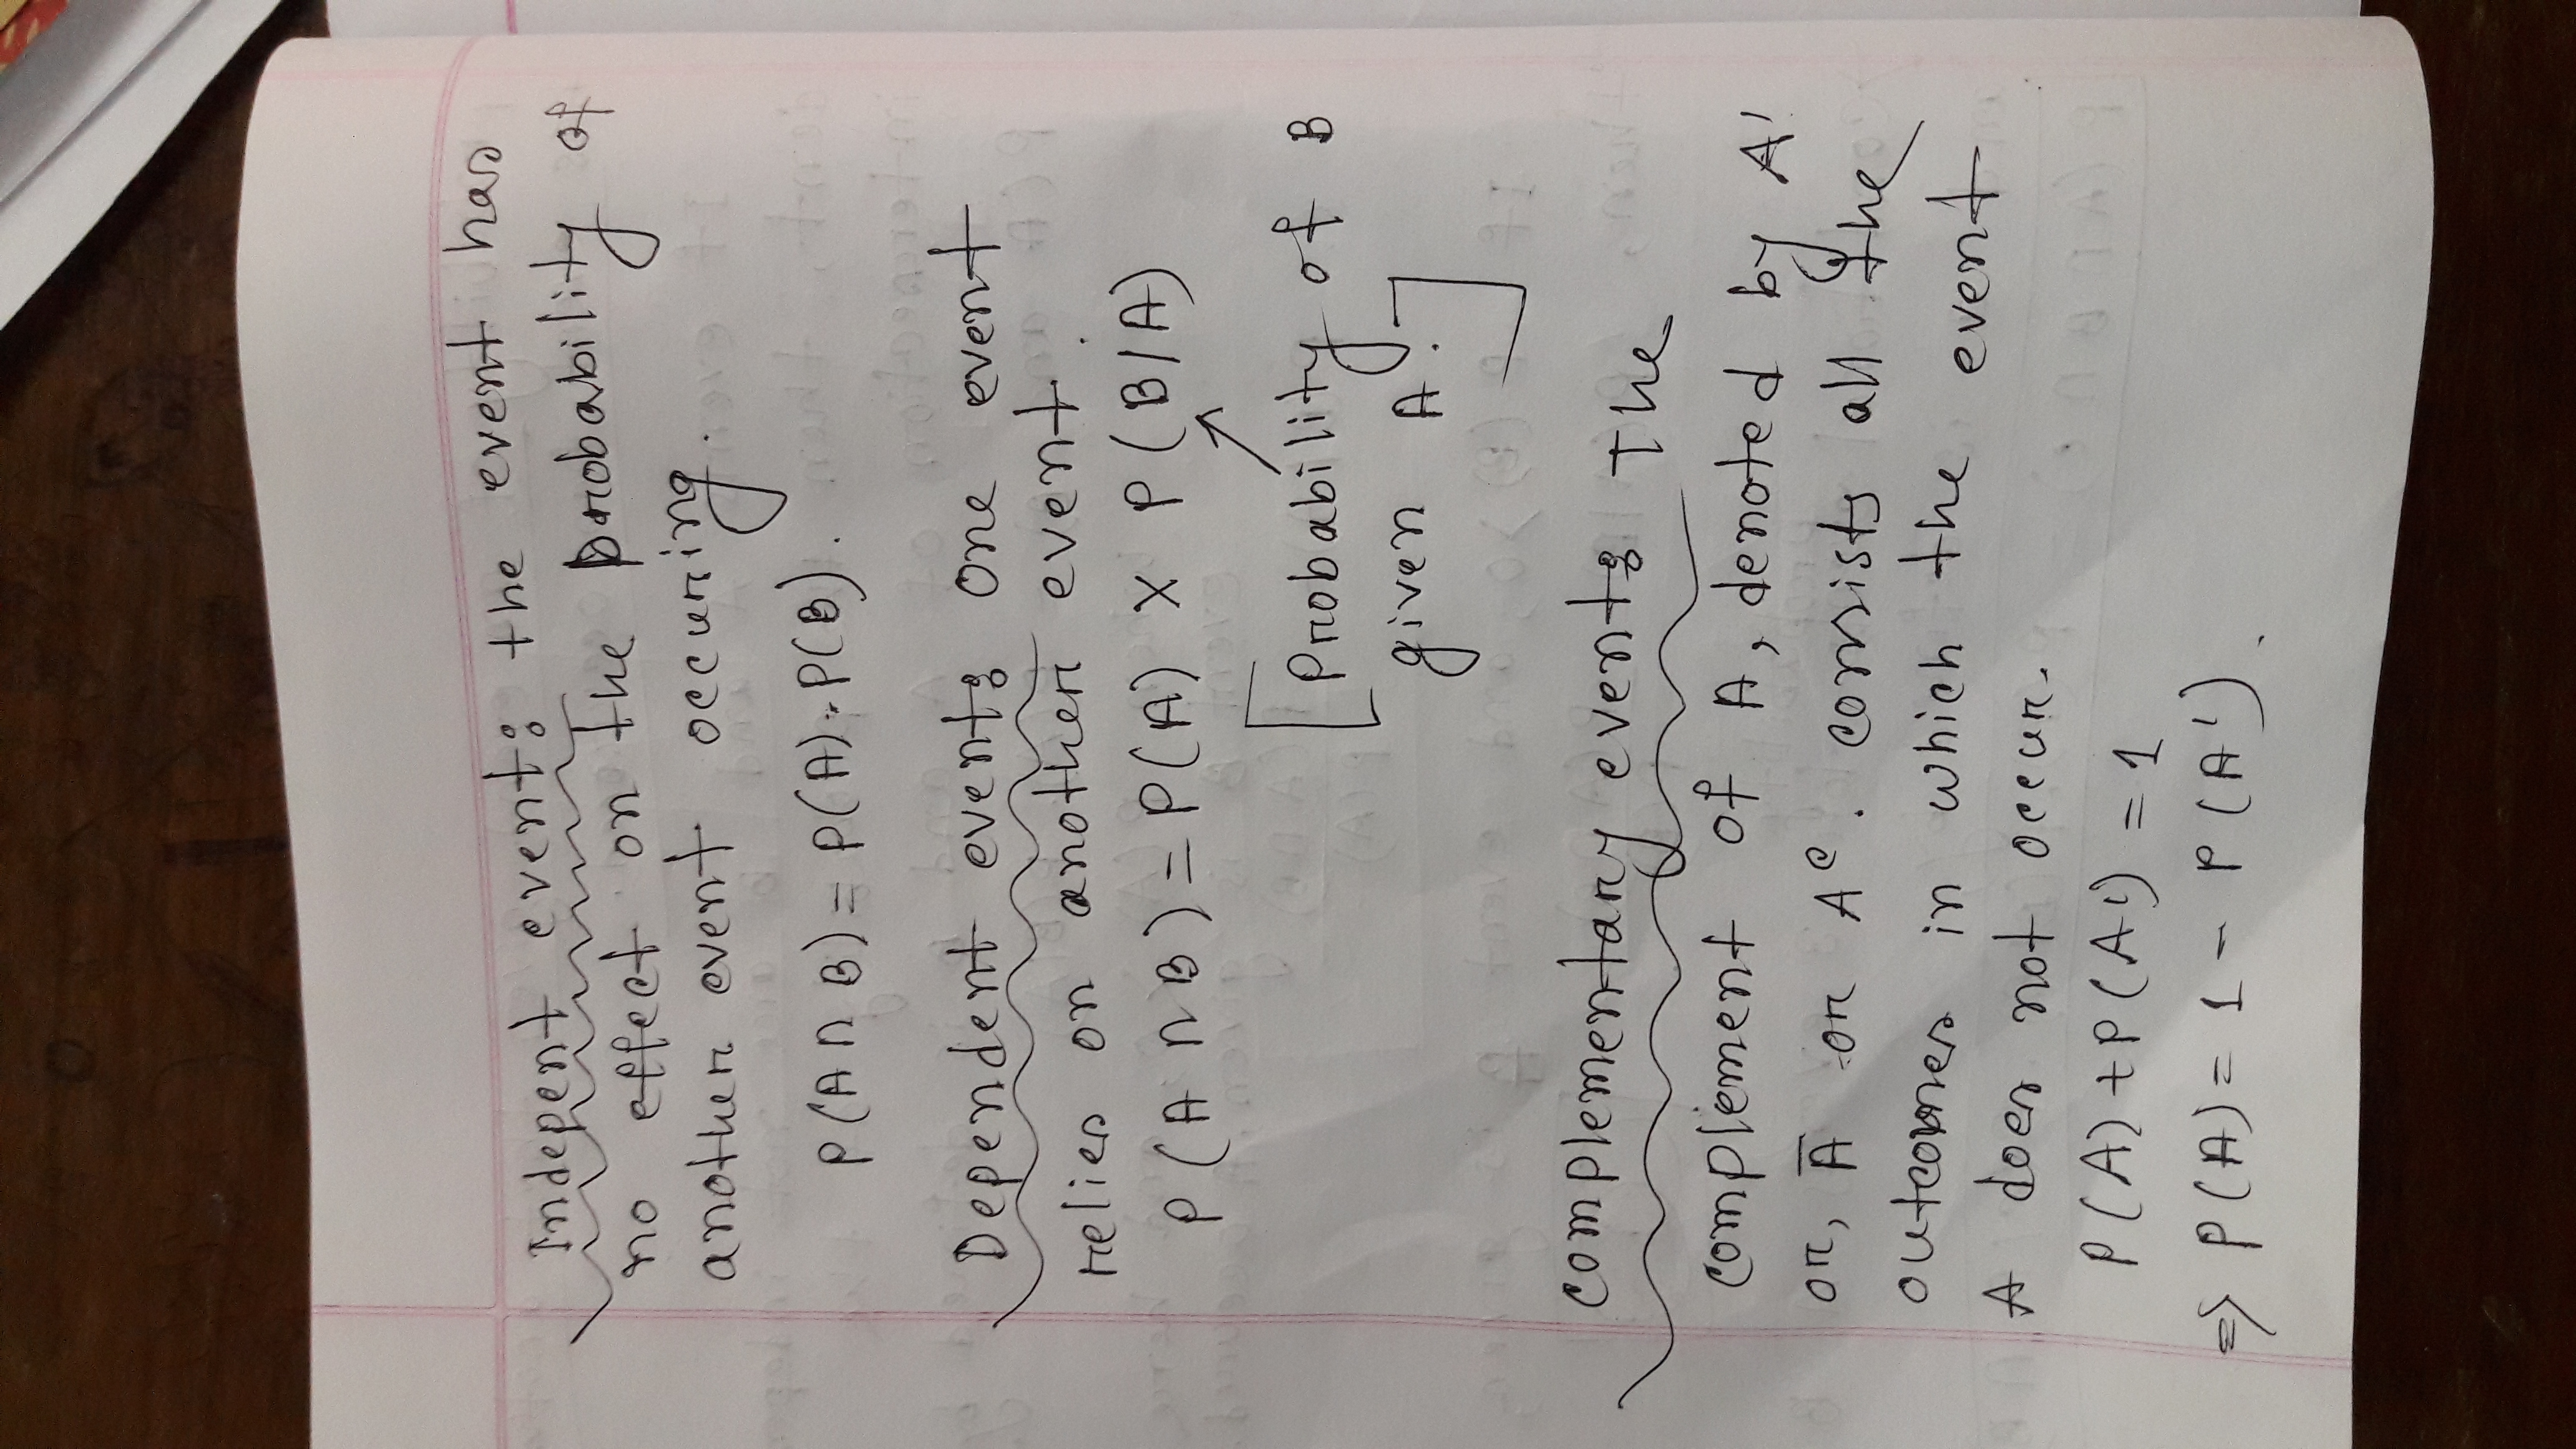 Indepent event: the event has
no effect on the probability of
another event occuring.
P(A ∩ B) = P(A) . P(B).
Dependent event: one event
relies on another event.
P(A ∩ B) = P(A) × P(B/A)
[Probability of B
given A.]
complementary event: The
complement of A, denoted by A'
or, Ā or Aᶜ. consists all the
outcomes in which the event
A does not occur.
P(A) + P(A') = 1
⇒ P(A) = 1 - P(A').